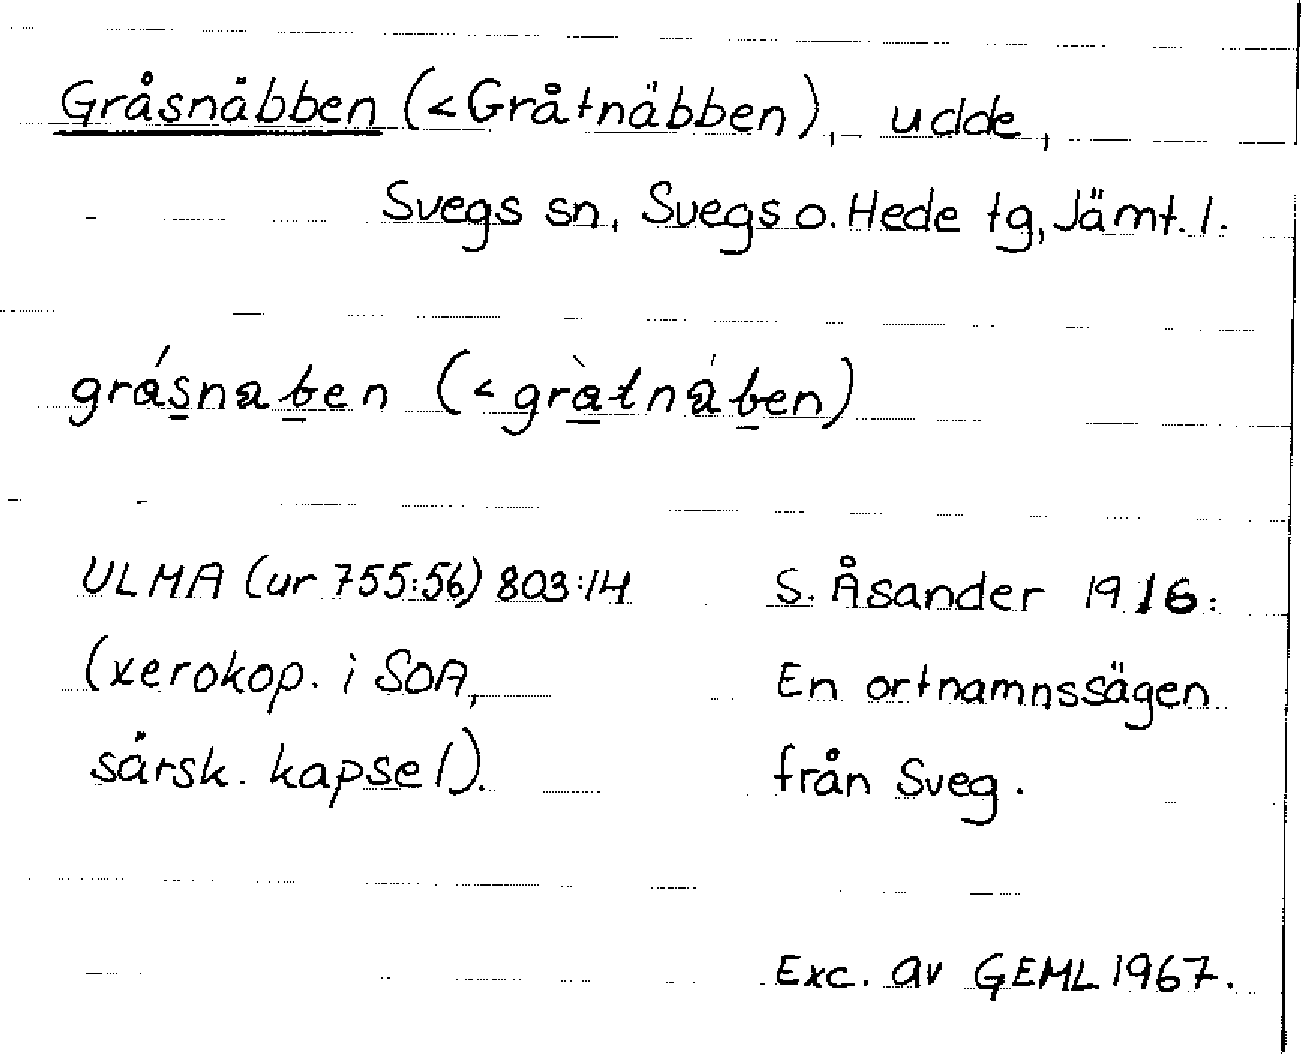 Gråsnäbben (<Gråtnäbben), udde,
Svegs sn, Svegs o. Hede tg, Jämt. l.
gråsnaben (<gràtnáben)
ULMA (ur 755:56) 803:14
(xerokop. i SOA,
särsk. kapsel).
S. Åsander 1916:
En ortnamnssägen
från Sveg.
Exc. av GEML 1967.